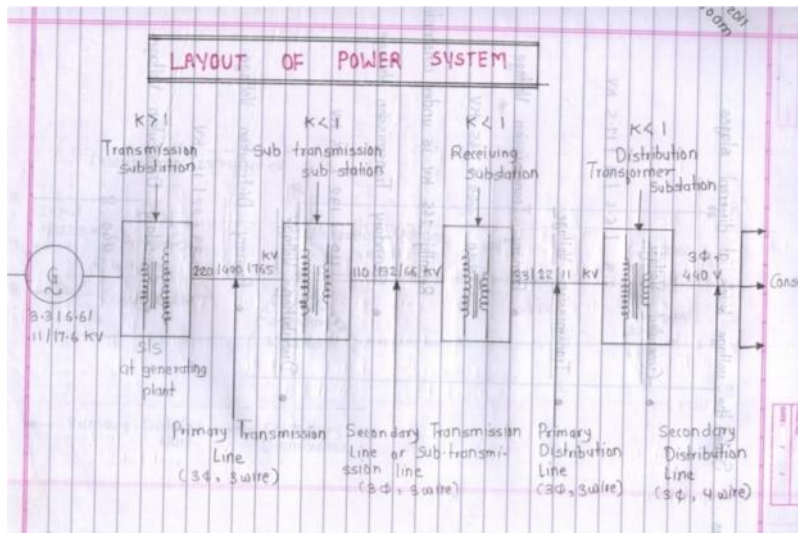 LAYOUT OF POWER SYSTEM
K>1
Transmission
substation
K<1
Sub transmission
sub station
K<1
Receiving
substation
K<1
Distribution
Transformer
Substation
G
3.3/6.6/
11/17.6 KV
220/400/765 KV
110/132/66 KV
33/22/11 KV
3Φ,
440 V
Cons
S/S
at generating
plant
Primary Transmission
Line
(3Φ, 3wire)
Secondary Transmission
Line or Sub-transmi-
ssion line
(3Φ, 3wire)
Primary
Distribution
Line
(3Φ, 3wire)
Secondary
Distribution
Line
(3Φ, 4wire)